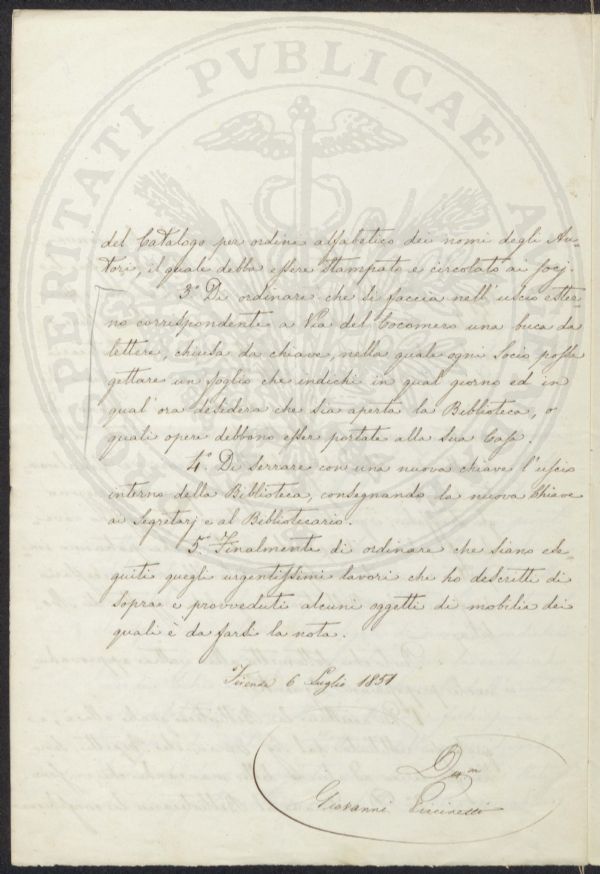 PROSPERITATI PVBLICAE AVGENDAE
del Catalogo per ordine alfabetico dei nomi degli Au=
tori, il quale debba essere stampato e circolato ai socj.
3.° Di ordinare che si faccia nell'uscio ester=
no corrispondente a Via del Cocomero una buca da
lettere, chiusa da chiave, nella quale ogni Socio possa
gettare un foglio che indichi in qual giorno ed in
qual'ora desidera che sia aperta la Biblioteca, o
quali opere debbono esser portate alla sua Casa.
4.° Di serrare con una nuova chiave l'uscio
interno della Biblioteca, consegnando la nuova Chiave
ai Segretarj e al Bibliotecario.
5.° Finalmente di ordinare che siano ese=
guiti quegli urgentissimi lavori che ho descritti di
sopra e provveduti alcuni oggetti di mobilia dei
quali è da farsi la nota.
Firenze 6 Luglio 1851
Giovanni